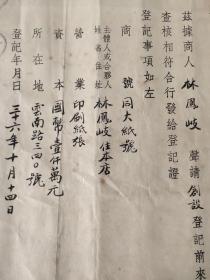 茲據商人林鳳岐聲請創設登記前來
查核相符合行發給登記證
登記事項如左
商號同大紙號
主體人或合夥人姓名住址林鳳岐住本店
營業印刷紙張
資本國幣壹仟萬元
所在地雲南路三四〇號
登記年月日三十六年十月十四日